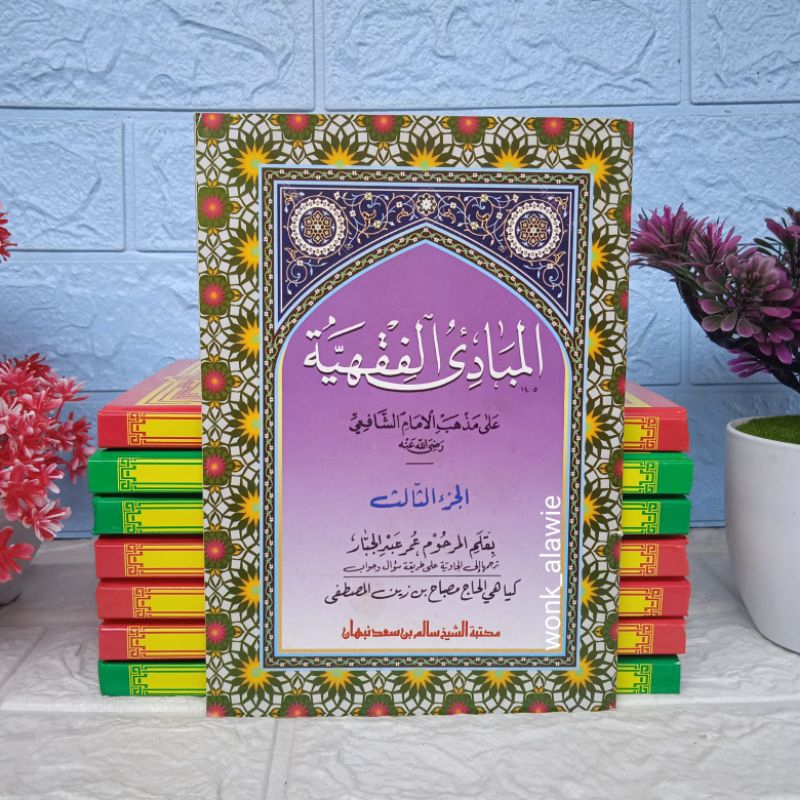 المبادئ الفقهية
١٤٠٥
على مذهب الإمام الشافعي
رضي الله عنه
الجزء الثالث
بقلم المرحوم عمر عبد الجبار
ترجمها إلى الجاوية على طريقة سؤال وجواب
كياهي الحاج مصباح بن زين المصطفى
مكتبة الشيخ سالم بن سعد نبهان
wonk_alawie